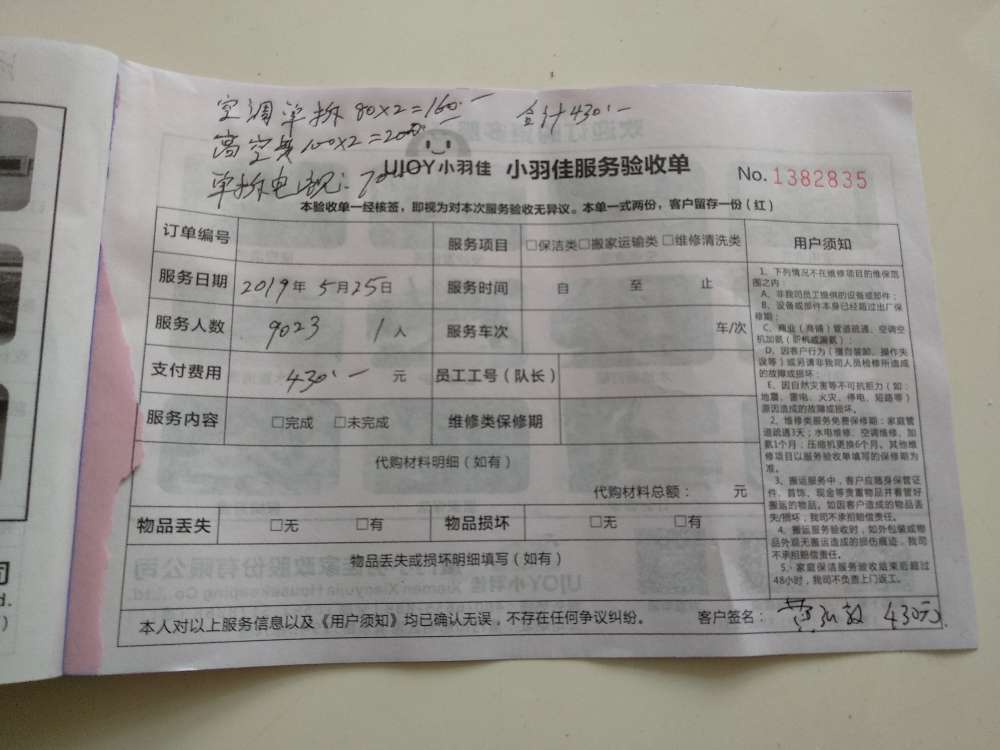 空调单拆80×2=160.一 合计430.一
高空费100×2=200
单拆电视:70
UJOY小羽佳 小羽佳服务验收单 No.1382835
本验收单一经核签，即视为对本次服务验收无异议。本单一式两份，客户留存一份（红）
订单编号 服务项目 □保洁类□搬家运输类□维修清洗类 用户须知
服务日期 2019年5月25日 服务时间 自 至 止
服务人数 9023 1人 服务车次 车/次
支付费用 430.一 元 员工工号（队长）
服务内容 □完成 □未完成 维修类保修期
代购材料明细（如有）
代购材料总额： 元
物品丢失 □无 □有 物品损坏 □无 □有
物品丢失或损坏明细填写（如有）
1、下列情况不在维修项目的维保范
围之内：
A、非我司员工提供的设备或部件；
B、设备或部件本身已经超过出厂保
修期；
C、商业（商铺）管道疏通、空调空
机加氨（听机或漏氨）；
D、因客户行为（擅自装卸、操作失
误等）或另请非我司人员检修所造成
的故障或损坏；
E、因自然灾害等不可抗拒力（如：
地震、雷电、火灾、停电、短路等）
原因造成的故障或损坏。
2、维修类服务免费保修期：家庭管
道疏通3天；水电维修、空调维修、加
氨1个月；压缩机更换6个月。其他维
修项目以服务验收单填写的保修期为
准。
3、搬运服务中，客户应随身保管证
件、首饰、现金等贵重物品并看管好
搬运的物品。如因客户造成的物品丢
失/损坏，我司不承担赔偿责任。
4、搬运服务验收时，如外包装或物
品外观无搬运造成的损伤痕迹，我司
不承担赔偿责任。
5、家庭保洁服务验收结束后超过
48小时，我司不负责上门返工。
本人对以上服务信息以及《用户须知》均已确认无误，不存在任何争议纠纷。 客户签名： 430元